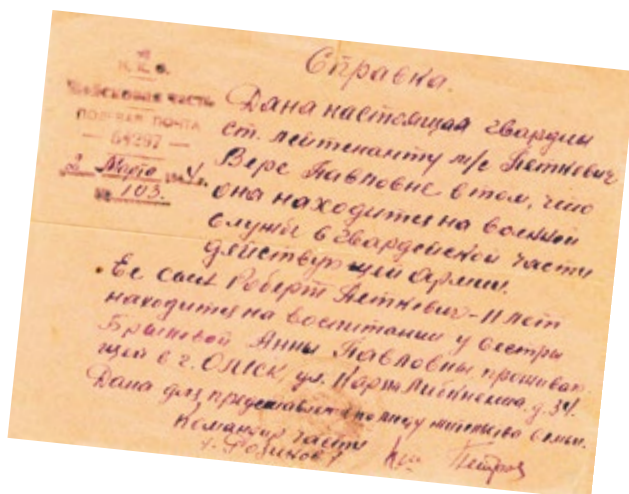 Н. К. О.
Войсковая часть
полевая почта
— 64297 —
2 Марта
№ 103.
Справка
Дана настоящая гвардии
ст. лейтенанту м/с Петкевич
Вере Павловне в том, что
она находится на военной
службе в гвардейской части
действующей Армии.
Ее сын Роберт Петкевич - 11 лет
находится на воспитании у сестры
Анны Павловны, прожива
ющей в г. Омск, ул. Карл Либкнехта, д. 34.
Дана для представления по месту жительства семьи.
Командир части
Петров